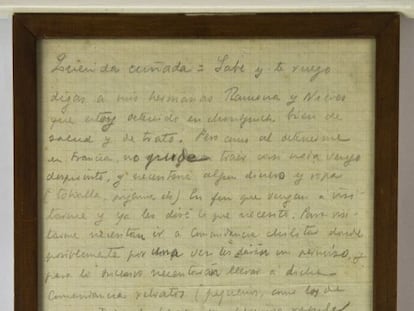 Querida cuñada = Sabe y te ruego
digas a mis hermanas Ramona y Nieves
que estoy detenido en bien de
salud y de trato. Pero como al detenerme
en Francia no pude traer con vengo
desprovisto, y necesitaré algun dinero y ropa
(toballa, pijama, etc) En fin que vengan a visi-
tarme y ya les diré lo que necesito. Para visi-
tarme necesitan ir a Comandancia donde
posiblemente por una vez les darán un permiso, y
para lo sucesivo necesitarán llevar a dicha
Comandancia retratos (pequeños, como los de